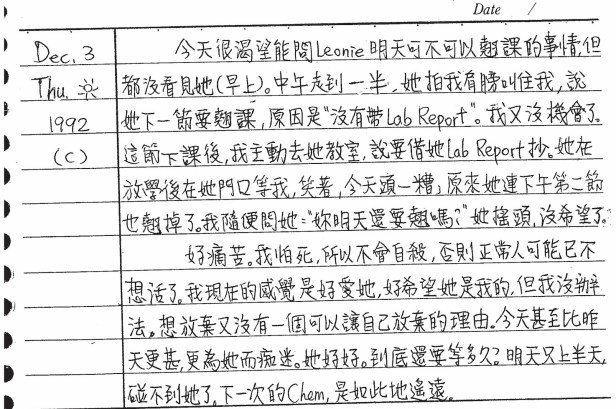 Date /
Dec. 3 今天很渴望能問Leonie明天可不可以翹課的事情,但
Thu. 都沒看見她(早上)。中午走到一半,她拍我肩膀叫住我,說
1992 她下一節要翹課,原因是"沒有帶Lab Report"。我又沒機會了。
(C) 這節下課後,我主動去她教室,說要借她Lab Report抄。她在
放學後在她門口等我,笑著,今天頭一糟;原來她連下午第二節
也翹掉了。我隨便問她:"妳明天還要翹嗎?"她搖頭,沒希望了。
好痛苦。我怕死,所以不會自殺,否則正常人可能已不
想活了。我現在的感覺是好愛她,好希望她是我的,但我沒辦
法。想放棄又沒有一個可以讓自己放棄的理由。今天甚至比昨
天更甚,更為她而痴迷。她好好。到底還要等多久?明天又上半天,
碰不到她了。下一次的Chem,是如此地遙遠。